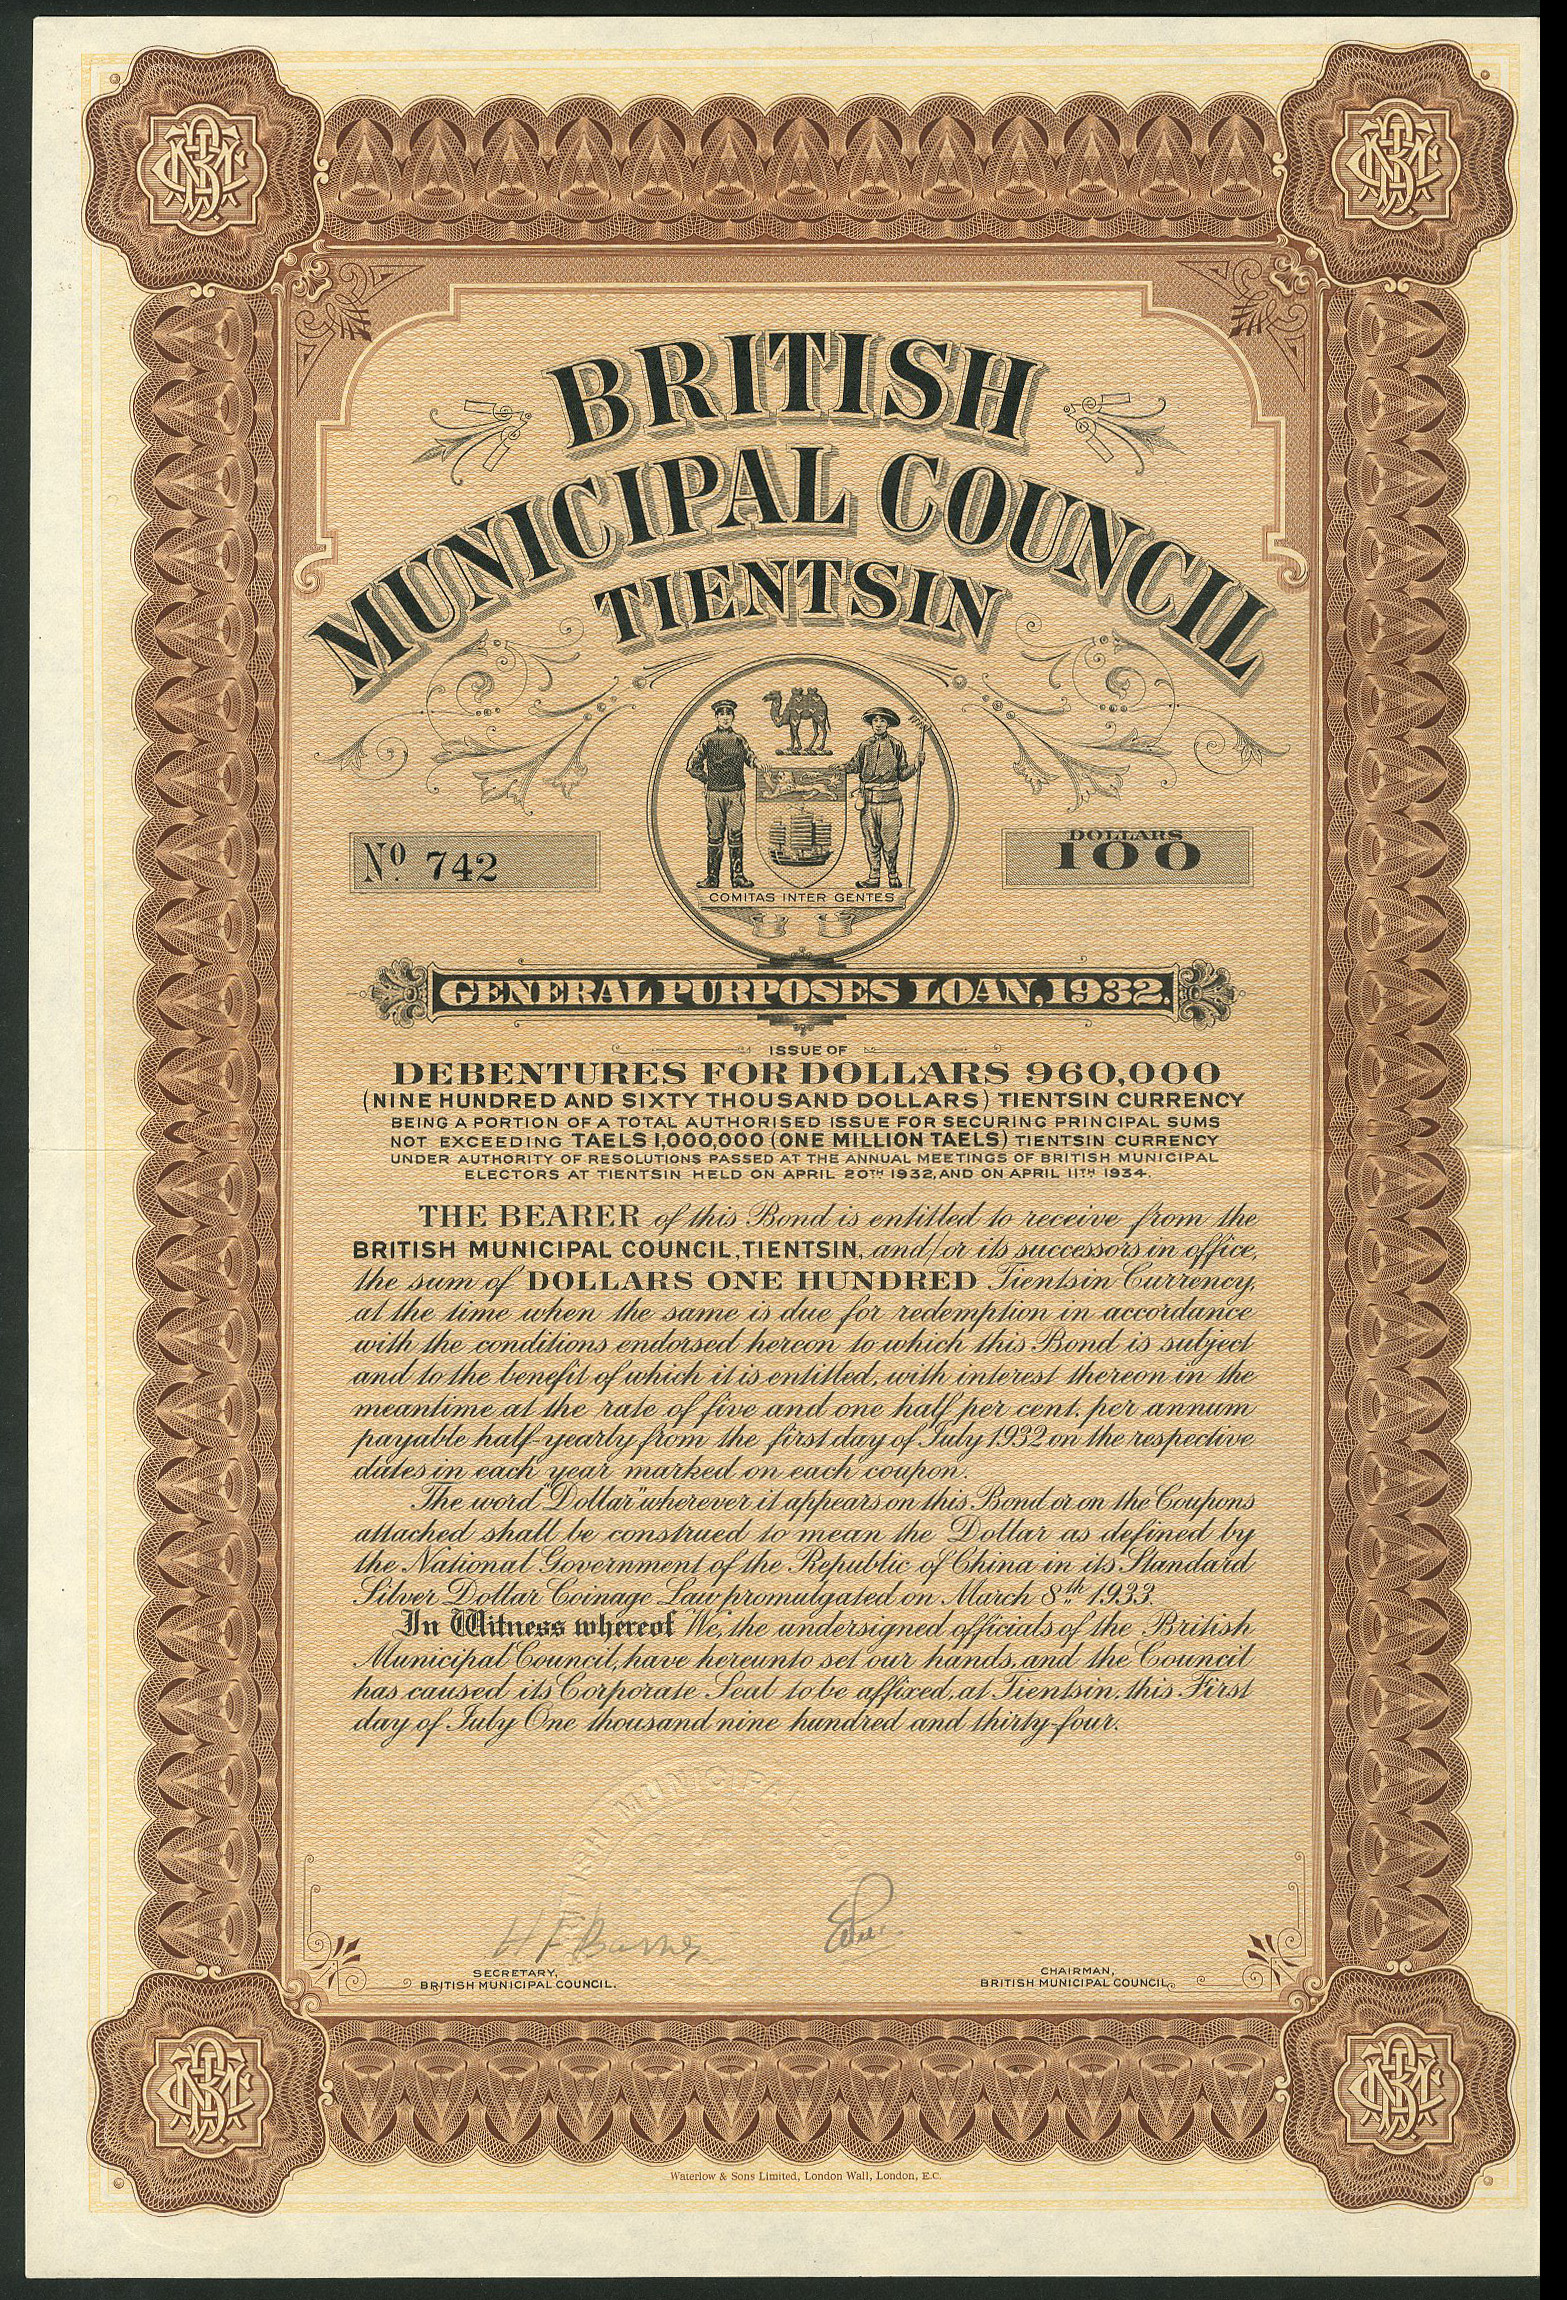 BRITISH
MUNICIPAL COUNCIL
TIENTSIN
COMITAS INTER GENTES
No. 742
DOLLARS
100
GENERAL PURPOSES LOAN, 1932.
ISSUE OF
DEBENTURES FOR DOLLARS 960,000
(NINE HUNDRED AND SIXTY THOUSAND DOLLARS) TIENTSIN CURRENCY
BEING A PORTION OF A TOTAL AUTHORISED ISSUE FOR SECURING PRINCIPAL SUMS
NOT EXCEEDING TAELS 1,000,000 (ONE MILLION TAELS) TIENTSIN CURRENCY
UNDER AUTHORITY OF RESOLUTIONS PASSED AT THE ANNUAL MEETINGS OF BRITISH MUNICIPAL
ELECTORS AT TIENTSIN HELD ON APRIL 20TH 1932, AND ON APRIL 11TH 1934.
THE BEARER of this Bond is entitled to receive from the
BRITISH MUNICIPAL COUNCIL, TIENTSIN, and/or its successors in office,
the sum of DOLLARS ONE HUNDRED Tientsin Currency,
at the time when the same is due for redemption in accordance
with the conditions endorsed hereon to which this Bond is subject
and to the benefit of which it is entitled, with interest thereon in the
meantime at the rate of five and one half per cent. per annum
payable half-yearly from the first day of July 1932 on the respective
dates in each year marked on each coupon.
The word "Dollar" wherever it appears on this Bond or on the Coupons
attached shall be construed to mean the Dollar as defined by
the National Government of the Republic of China in its Standard
Silver Dollar Coinage Law promulgated on March 8th 1933.
In Witness whereof We, the undersigned officials of the British
Municipal Council, have hereunto set our hands, and the Council
has caused its Corporate Seal to be affixed, at Tientsin, this First
day of July One thousand nine hundred and thirty-four.
BRITISH MUNICIPAL
H F Barnes
SECRETARY,
BRITISH MUNICIPAL COUNCIL.
CHAIRMAN,
BRITISH MUNICIPAL COUNCIL.
Waterlow & Sons Limited, London Wall, London, E.C.